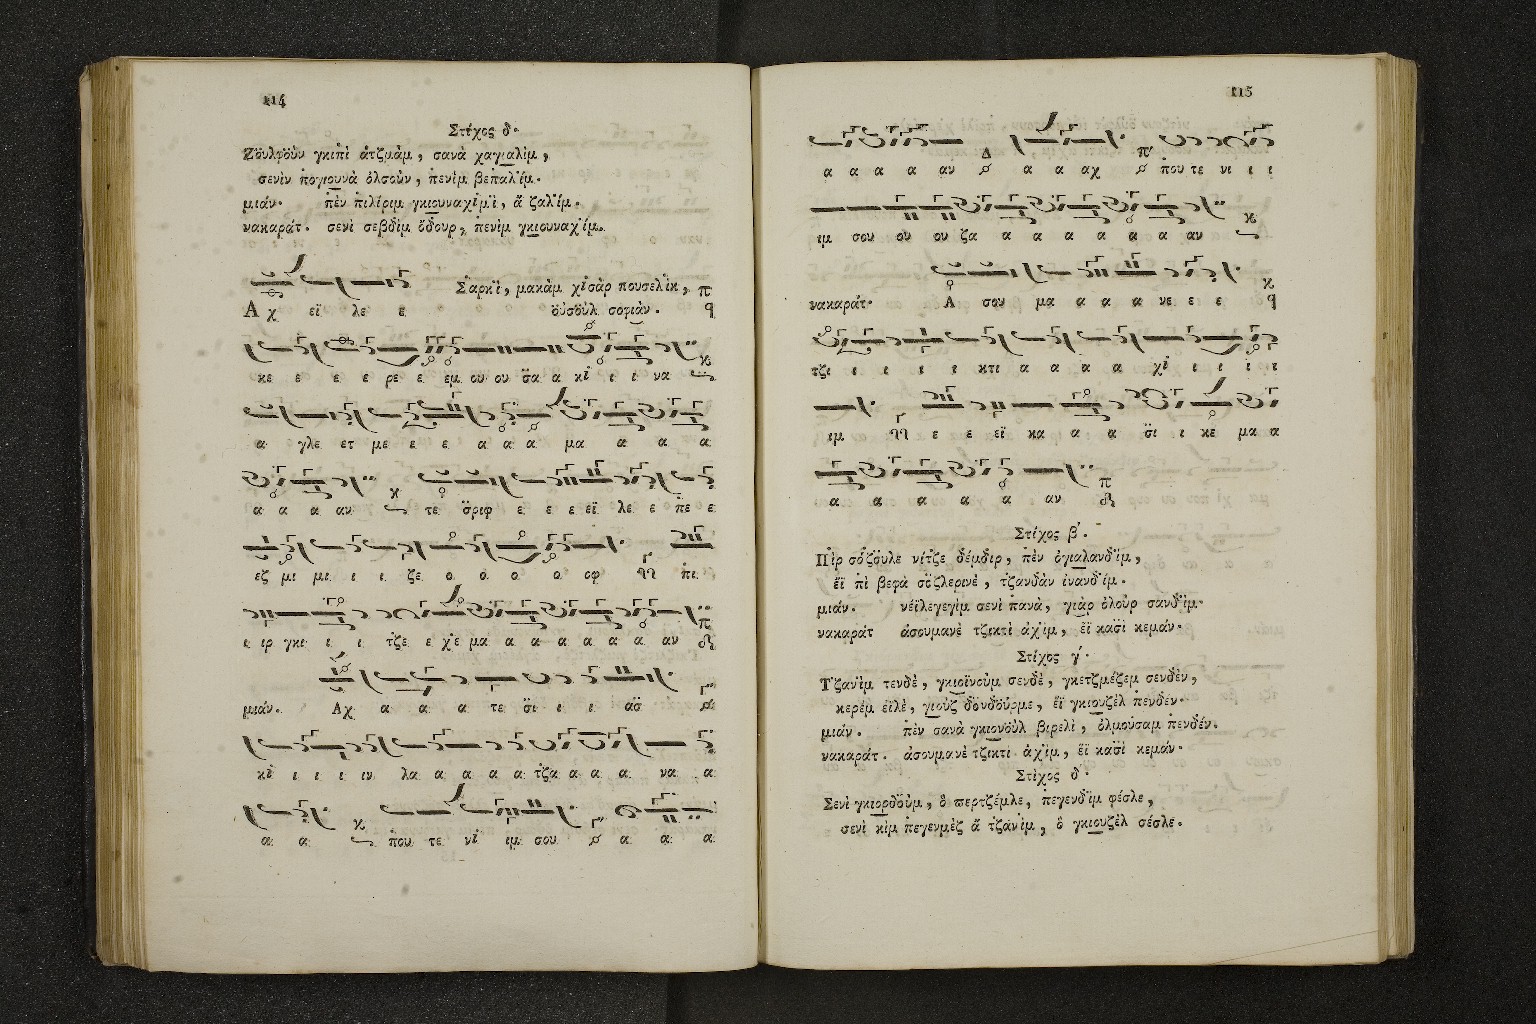 114
Στίχος δ·
Ζὀυλφὀυν γκιπὶ ἀτζμὰμ, σανὰ χαγιαλὶμ,
σενὶν πογιουνὰ ὀλσοὺν, πενὶμ βεπαλίμ.
μιάν. πὲν πιλίριμ γκιουναχὶμὶ, ἄ ζαλίμ.
νακαράτ. σενὶ σεβδὶμ ὄδουρ, πενὶμ γκιουναχίμ.
Σαρκὶ, μακὰμ χἰσὰρ πουσελὶκ, π
Α χ εϊ λε ε οὐσοὺλ σοφιὰν. q
κε ε ε ε ρε ε εμ ου ου σα α κἰ ι ι να
α γλε ετ με ε ε α α α μα α α α
α α α αν τε σριφ ε ε ε εϊ λε ε πε ε
εζ μι μι ι ι ζε ο ο ο ο οφ πι
ι ιρ γκι ι ι τζε ε χ̇ε μα α α α α α α αν
μιάν. Αχ α α α τε σι ι ι ασ
κἰ ι ι ι ιν λα α α α α τζα α α α να α
α α που τε νἰ ιμ σου α α α
115
α α α α αν α α αχ που τε νι ι ι
ιμ σου ου ου ζα α α α α α α αν
νακαράτ· Α σου μα α α α νε ε ε q
τζι ι ι ι ι κτι α α α α χἰ ι ι ι ι
ιμ ε ε εϊ κα α α σι ι κε μα α
α α α α α αν
Στίχος β'.
Πὶρ σὀζοὺλε νίτζε δέμδιρ, πὲν ὀγιαλανδὶμ,
ἔϊ πὶ βεφὰ σὀζλερινὲ, τζανδὰν ἰνανδίμ.
μιάν. νέϊλεγεγὶμ σενὶ πανὰ, γιὰρ ὀλοὺρ σανδὶμ·
νακαράτ ἀσουμανὲ τζικτὶ ἀχἰμ, ἔϊ κασὶ κεμάν.
Στίχος γ'.
Τζανὶμ τενδὲ, γκιοϊνοὺμ σενδὲ, γκετζμέζεμ σενδὲν,
κερέμ εϊλὲ, γιοὺζ δὀνδοὺρμε, ἔϊ γκιουζὲλ πενδέν.
μιάν. πὲν σανὰ γκιονοὺλ βιρελὶ, ὀλμούσαμ πενδέν.
νακαράτ. ἀσουμανὲ τζικτὶ ἀχἰμ, ἔϊ κασὶ κεμάν·
Στίχος δ'
Σενὶ γκιορδοὺμ, ὀ περτζέμλε, πεγενδὶμ φέσλε,
σενὶ κὶμ πεγενμὲζ ἄ τζανὶμ, ὀ γκιουζὲλ σέσλε.